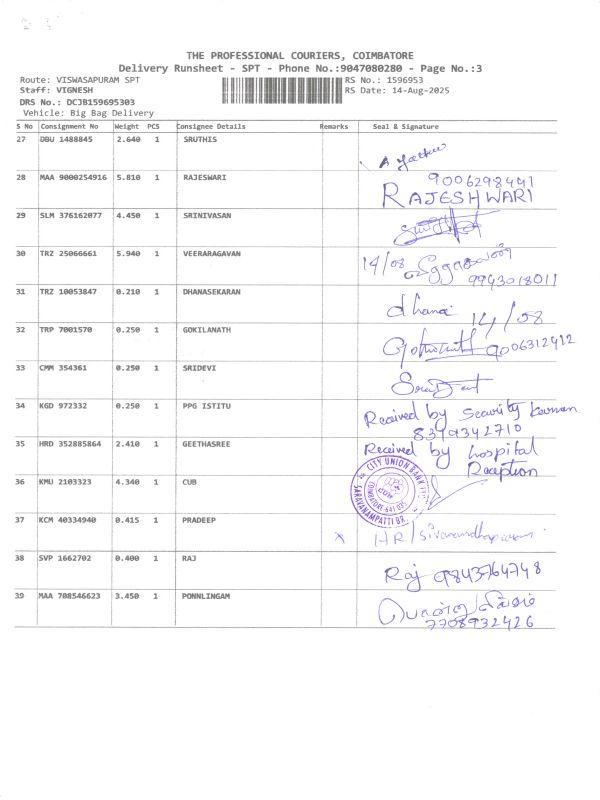 THE PROFESSIONAL COURIERS, COIMBATORE
Delivery Runsheet - SPT - Phone No.:9047080280 - Page No.:3
Route: VISWASAPURAM SPT RS No.: 1596953
Staff: VIGNESH RS Date: 14-Aug-2025
DRS No.: DCJB159695303
Vehicle: Big Bag Delivery
S No Consignment No Weight PCS Consignee Details Remarks Seal & Signature
27 DBU 1488845 2.640 1 SRUTHIS
28 MAA 9000254916 5.810 1 RAJESWARI 9006298491
RAJESHWARI
29 SLM 376162077 4.450 1 SRINIVASAN
30 TRZ 25066661 5.940 1 VEERARAGAVAN 14/08
9943018011
31 TRZ 10053847 0.210 1 DHANASEKARAN dhana 14/08
32 TRP 7001570 0.250 1 GOKILANATH 9006312912
33 CMM 354361 0.250 1 SRIDEVI
34 KGD 972332 0.250 1 PPG ISTITU Received by Security Kannan
8379342710
35 HRD 352885864 2.410 1 GEETHASREE Received by hospital
Reception
36 KMU 2103323 4.340 1 CUB CITY UNION BANK
COIMBATORE-641 035
SARAVANAMPATTI BR.
37 KCM 40334940 0.415 1 PRADEEP x HR/
38 SVP 1662702 0.400 1 RAJ Raj 9843764748
39 MAA 708546623 3.450 1 PONNLINGAM
7708932426